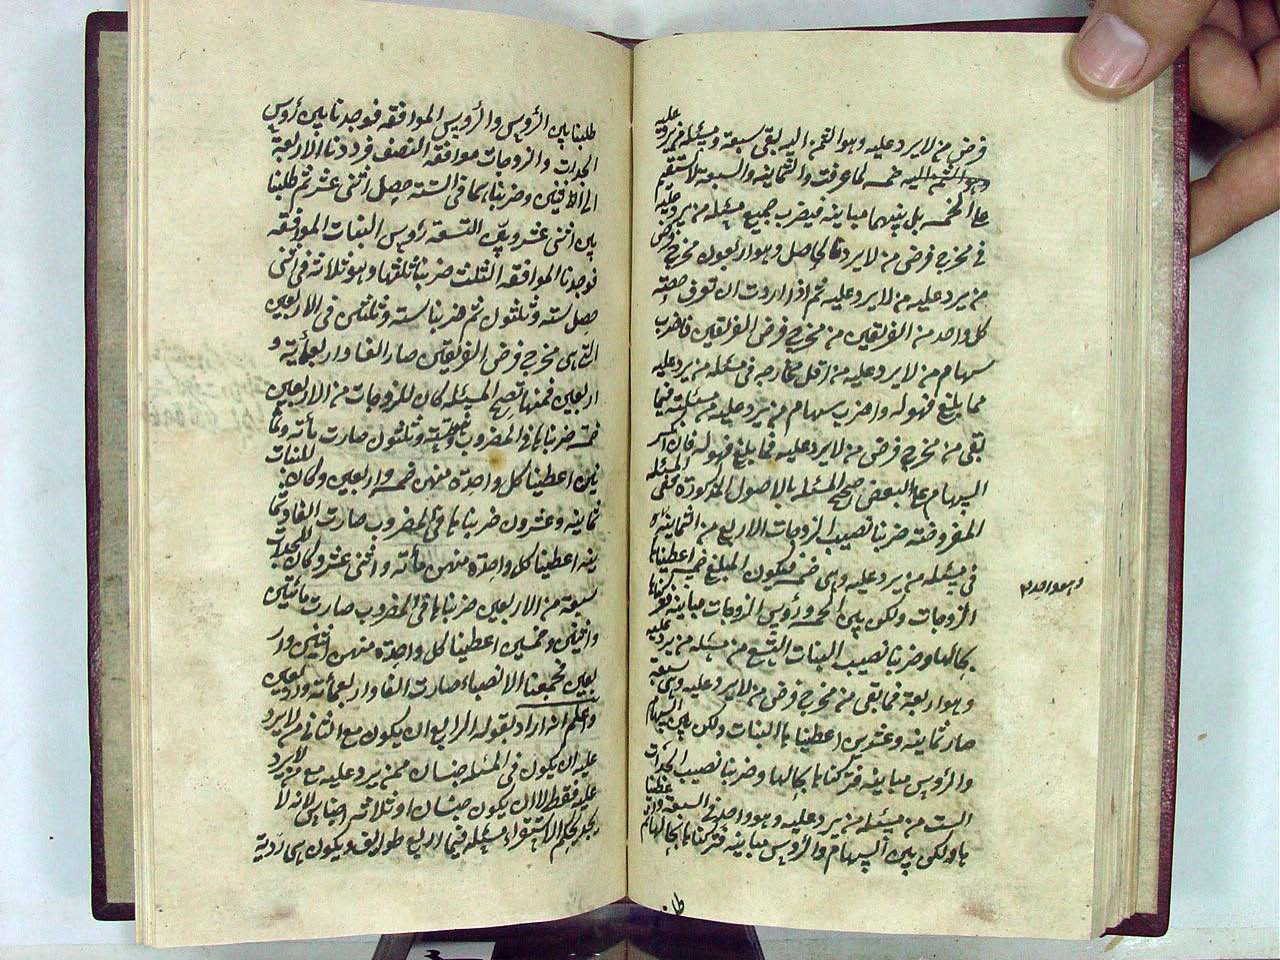 فرض من لا يرد عليه وهو الثمن اليه بقى سبعة ومسئلة من يرد عليه
خمسة كما عرفت والثمانية والسبعة لا تستقيم
على الخمسة بل بينهما مباينة فيضرب جميع مسئلة من يرد عليه
في مخرج فرض من لا يرد فالحاصل وهو اربعون مخرج فرض
من يرد عليه من لا يرد عليه ثم اذا اردت ان تعرف حصة
كل واحد من الفريقين من مخرج فرض الفريقين فاضرب
سهام من لا يرد عليه من اقل مخارجه في مسئلة من يرد عليه
فما بلغ فهو له واضرب سهام من يرد عليه من مسئلته فيما
بقى من مخرج فرض من لا يرد عليه فما بلغ فهو له فان انكسر
السهام على البعض صحح المسئلة بالاصول المذكورة ففى المسئلة
المفروضة ضربنا نصيب الزوجات الاربع من الثمانية
في مسئلة من يرد عليه وهى خمسة فيكون المبلغ خمسة اعطيناها
الزوجات ولكن بين الخمسة ورؤس الزوجات مباينة فتركناها
بحالها وضربنا نصيب البنات التسع من مسئلة من يرد عليه
وهو اربعة فما بقى من مخرج فرض من لا يرد عليه وهى سبعة
صار ثمانية وعشرين اعطيناها البنات ولكن بين السهام
والرؤس مباينة فتركناها بحالها وضربنا نصيب الجدات
الست من مسئلة من يرد عليه وهو واحد في السبعة واعطينا
ها ولكن بين السهام والرؤس مباينة فتركناها بحالها ثم
طلبنا بين الرؤس والرؤس الموافقة فوجدنا بين رؤس
الجدات والزوجات موافقة النصف فرددنا الاربعة
الى الاثنين وضربناهما فى الستة حصل اثنى عشر ثم طلبنا
بين اثنى عشر وبين التسعة رؤس البنات الموافقة
فوجدنا الموافقة الثلث ضربنا ثلثها وهو ثلاثة فى اثنى
حصل ستة وثلثون ثم ضربنا ستة وثلثين فى الاربعين
التى هى مخرج فرض الفريقين صار الفا واربعمأية و
اربعين فمنها تصح المسئلة كان للزوجات من الاربعين
خمسة ضربناها فى المضروب وهو ستة وثلثون صارت مأته وثما
نين اعطينا كل واحدة منهن خمسة واربعين وكان للبنات
ثمانية وعشرون ضربناها فى المضروب صارت الفا وثما
نية اعطينا كل واحدة منهن مأته واثنى عشر وكان للجدات
سبعة من الاربعين ضربناها فى المضروب صارت مأتين
واثنين وخمسين اعطينا كل واحدة منهن اثنين وار
بعين فجمعنا الانصباء صارت الفا واربعمأته واربعين
واعلم انه اراد بقوله الرابع ان يكون مع الثانى من لا يرد
عليه ان يكون فى المسئلة جنسان ممن يرد عليه مع من لا يرد
عليه فقط لا ان يكون جنسان او ثلاثة اجناس لانه لا
يجد بحكم الاستقراء مسئلة فيها اربع طوائف ويكون هى ردية